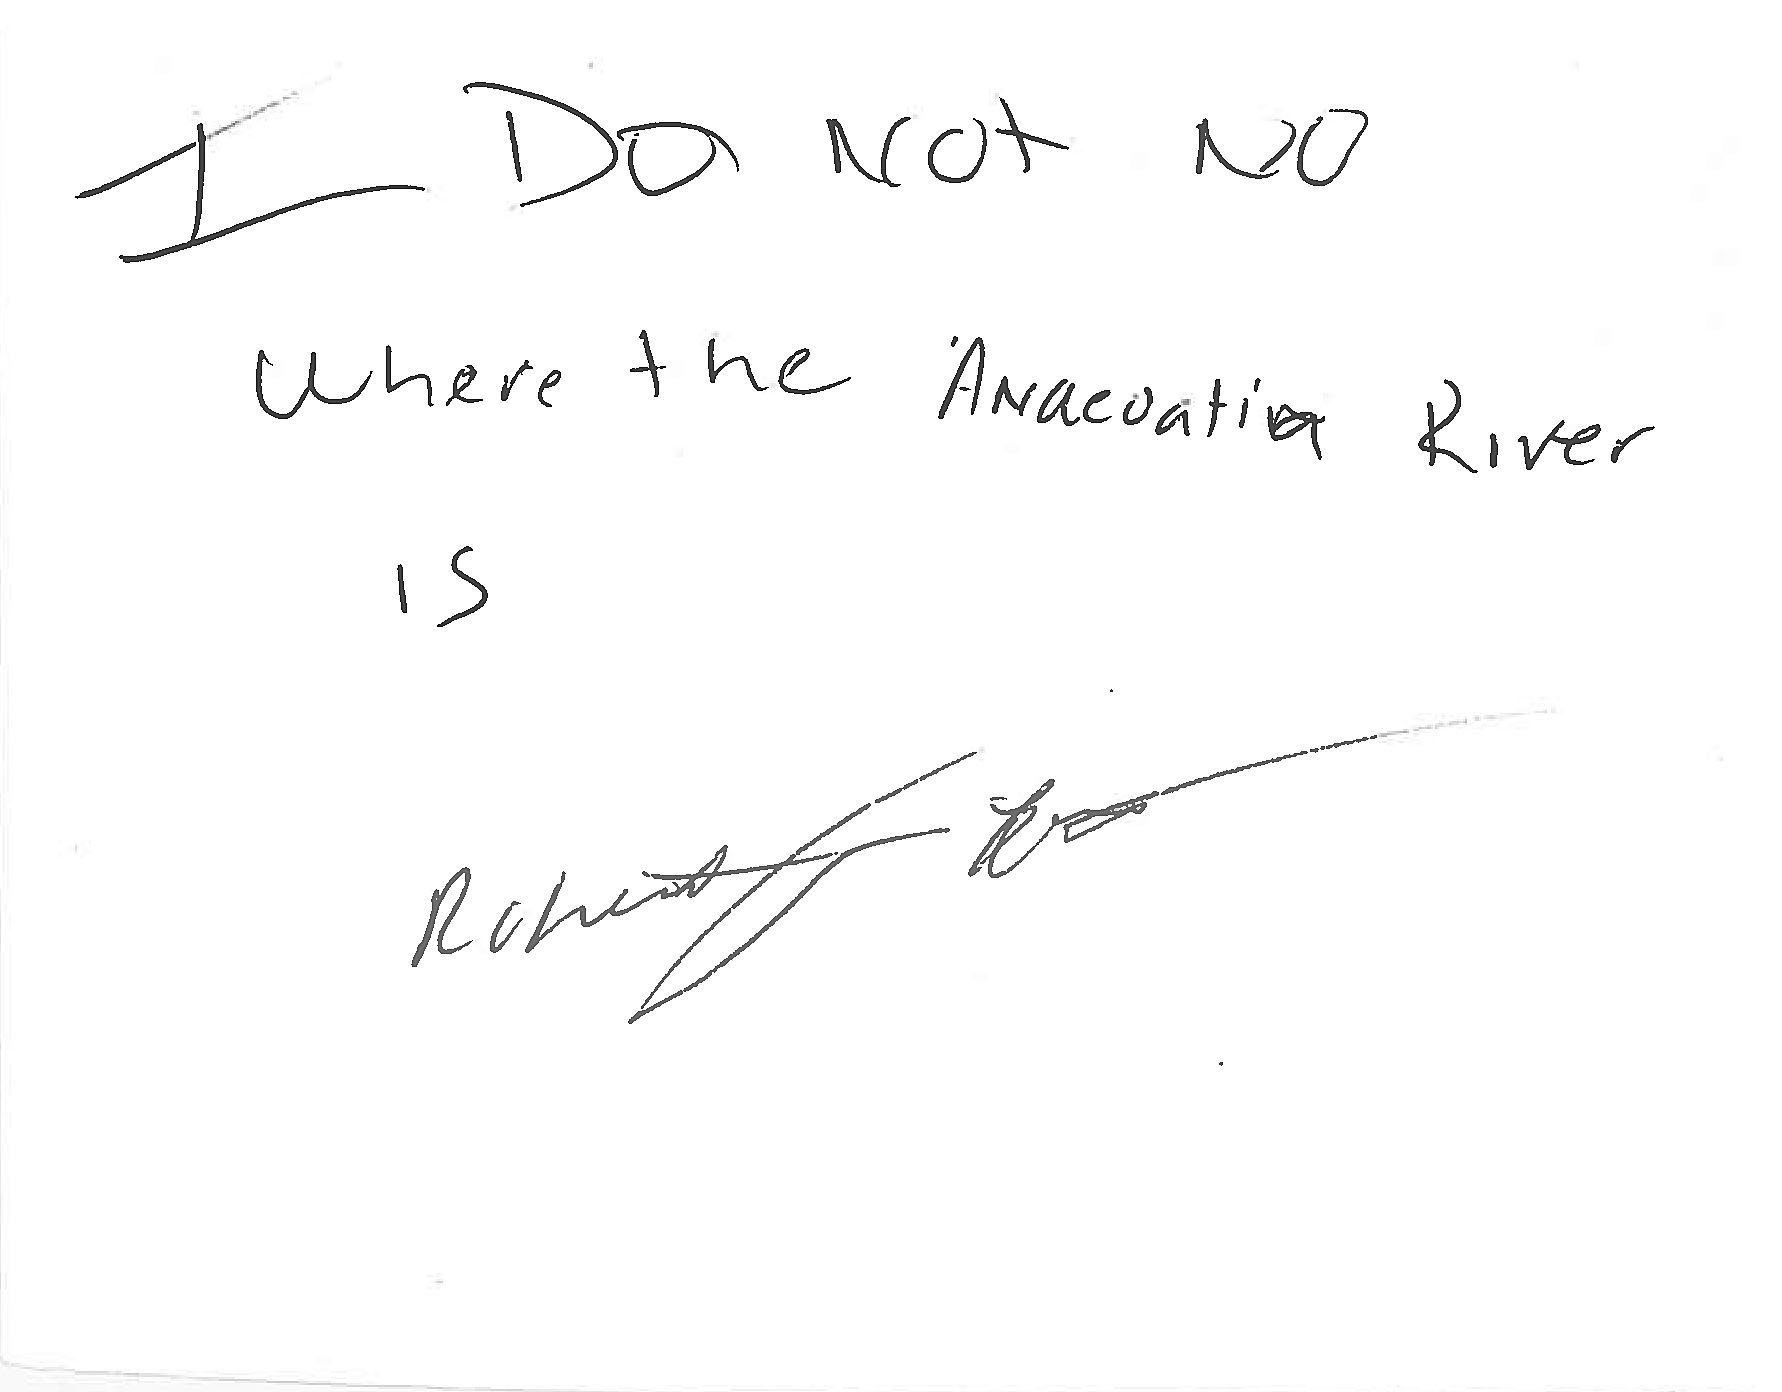 I DO NOT NO
Where the Anacuatia River
is
Robert